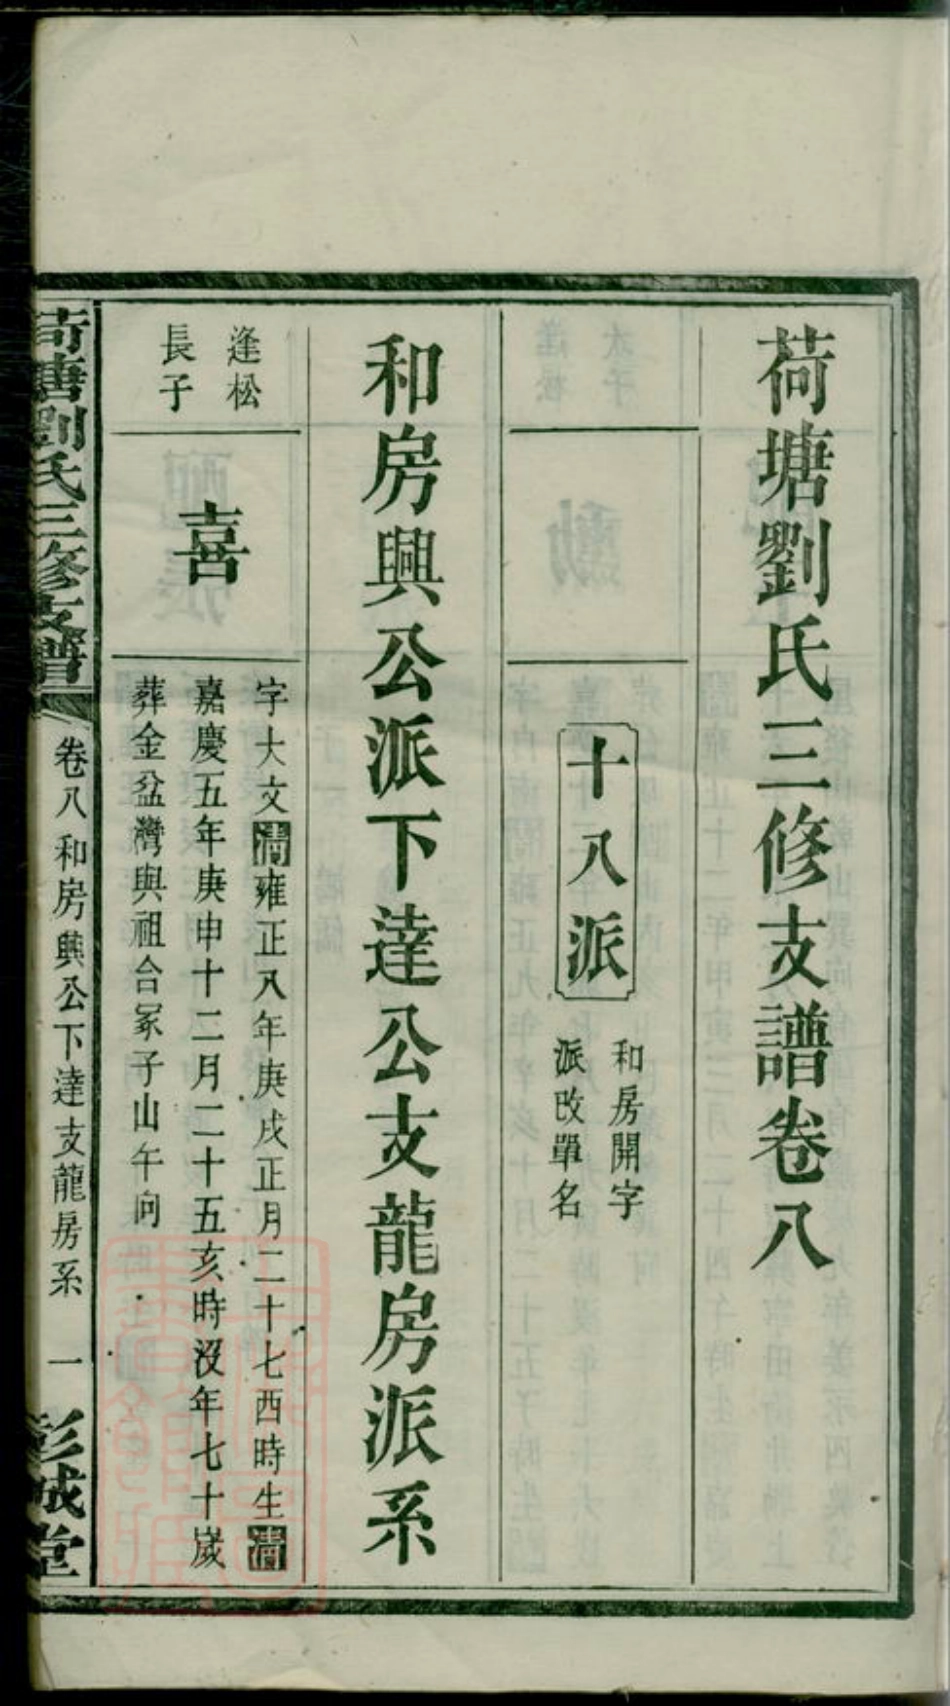 荷塘劉氏三修支譜卷八
十八派
和房開字
派改單名
和房興公派下達公支龍房派系
逢松
長子
喜
字大文清雍正八年庚戌正月二十七酉時生清
嘉慶五年庚申十二月二十五亥時沒年七十歲
葬金盆灣與祖合冢子山午向
荷塘劉氏三修支譜
卷八和房興公下達支龍房系
一
彭城堂